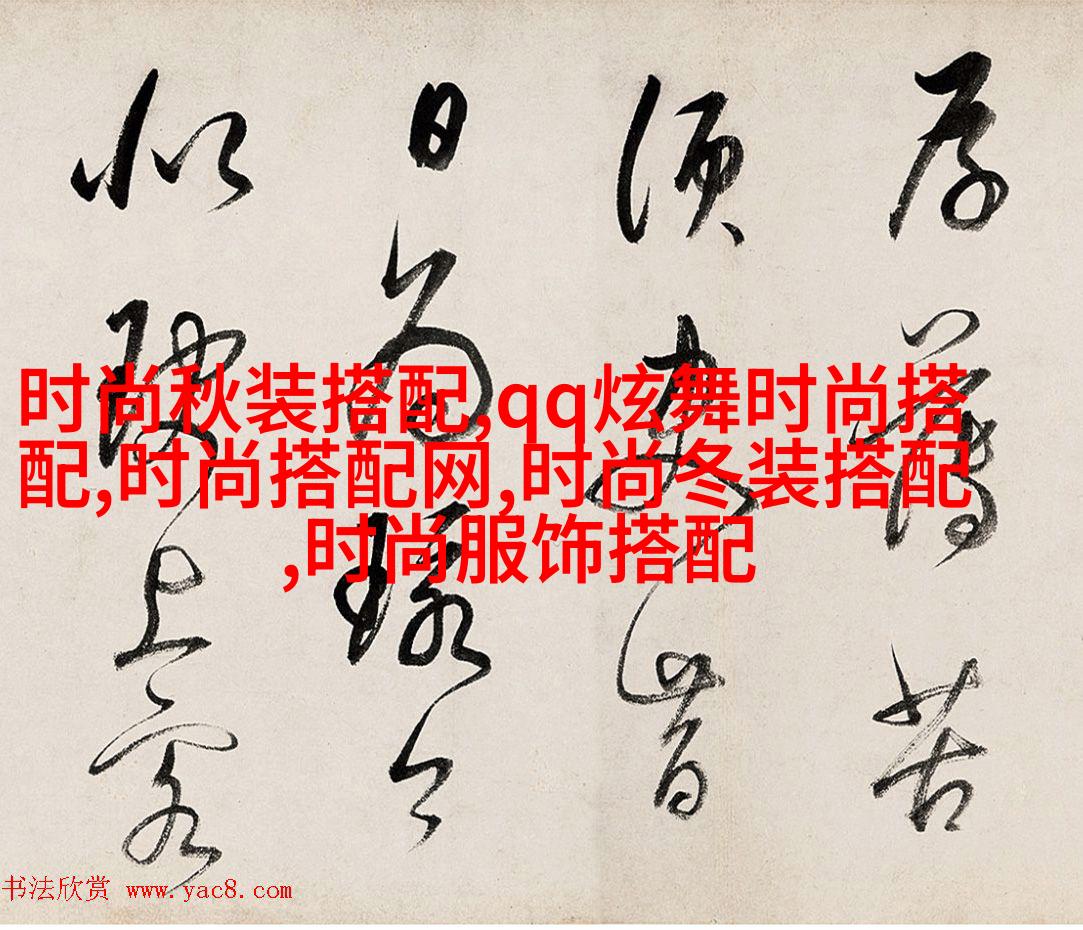 厚薄苦
须臾昔
日
似 上客
时尚秋装搭配,qq炫舞时尚搭
配,时尚搭配网,时尚冬装搭配
,时尚服饰搭配
书法欣赏 www.yac8.com